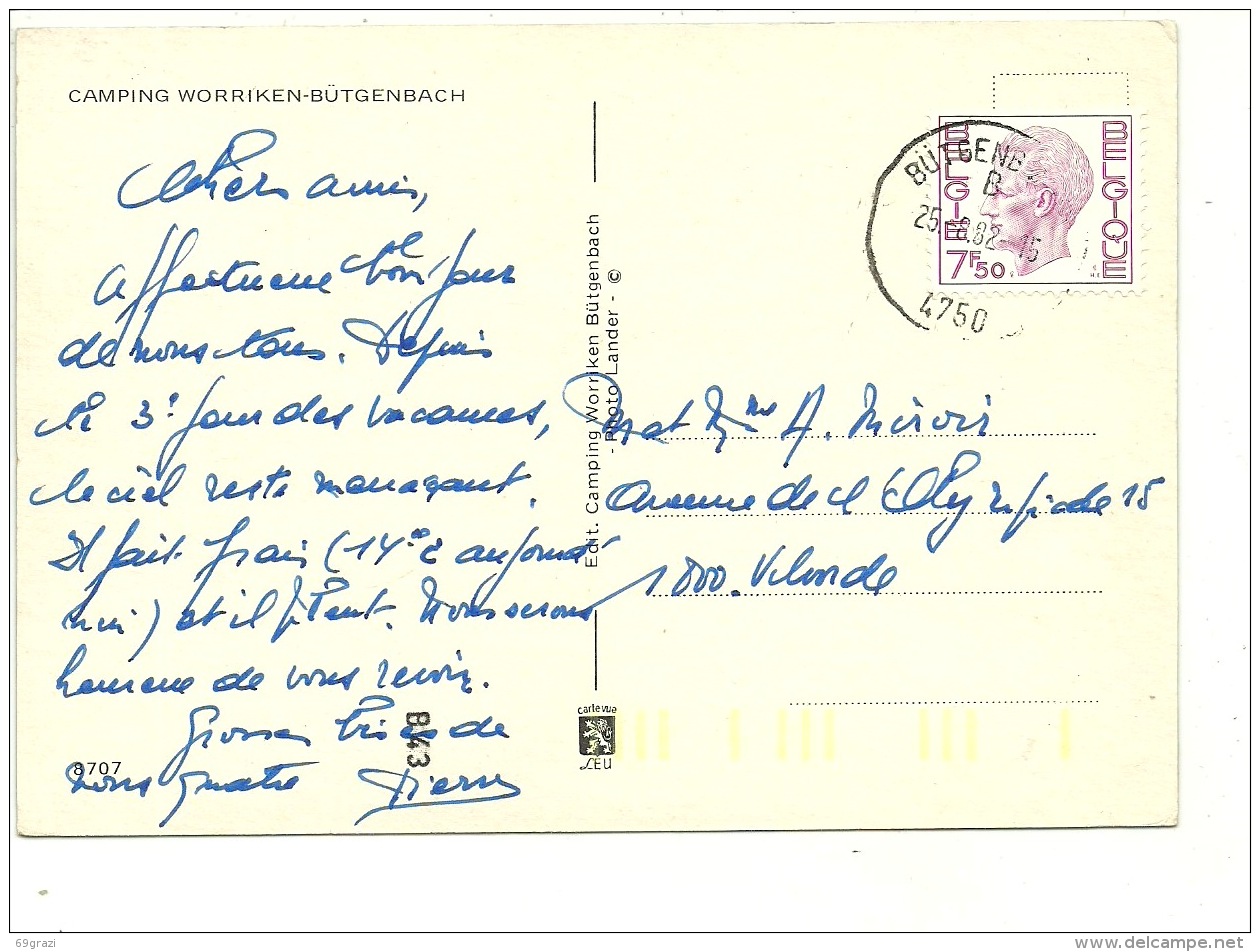 CAMPING WORRIKEN-BÜTGENBACH
Chers amis,
Affectueux bonjour
de nous tous. Depuis
le 3e jour des vacances,
le ciel reste menaçant.
Il fait frais (14° aujourd'
hui) et il pleut. Nous serons
heureux de vous revoir.
Grosses bises de
nous quatre Pierre
8707
843
Edit. Camping Worriken Bütgenbach
- Photo Lander - ©
carte vue
LEU
BELGIE BELGIQUE
7F50
BÜTGENB
B
25.-8.82 15
4750
et Mme A. Miroir
Avenue de l'Olympiade 15
1800. Vilvorde
69grazi
www.delcampe.net